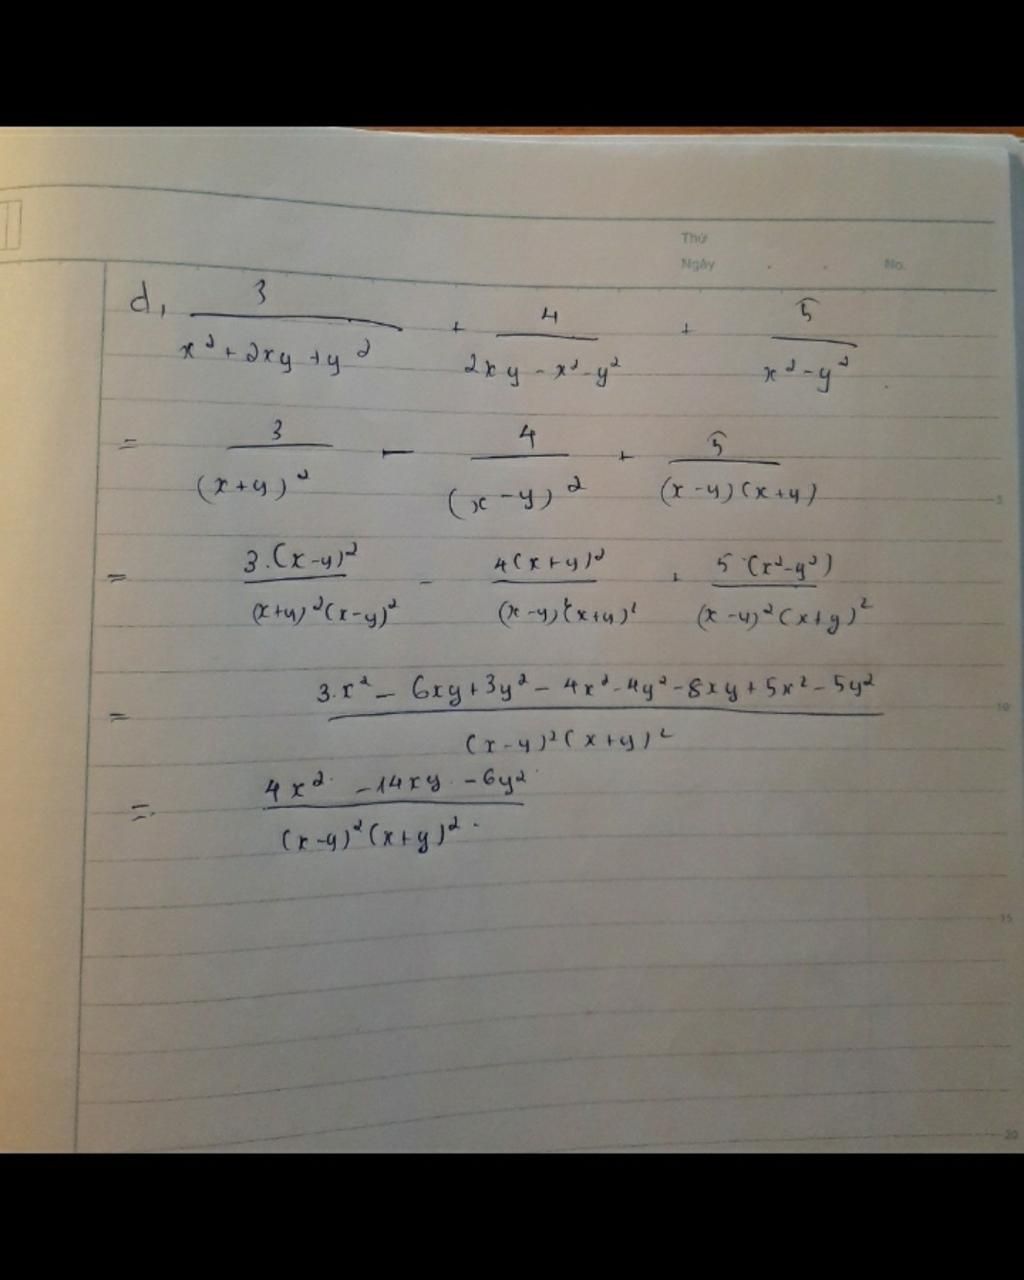 Thứ
Ngày . . No.
d, 3/(x² + 2xy + y²) + 4/(2xy - x² - y²) + 5/(x² - y²)
= 3/(x+y)² - 4/(x-y)² + 5/((x-y)(x+y))
= 3.(x-y)²/((x+y)²(x-y)²) - 4(x+y)²/((x-y)²(x+y)²) + 5.(x²-y²)/((x-y)²(x+y)²)
= (3.x² - 6xy + 3y² - 4x² - 4y² - 8xy + 5x² - 5y²)/((x-y)²(x+y)²)
= (4x² - 14xy - 6y²)/((x-y)²(x+y)²)
5
10
15
20